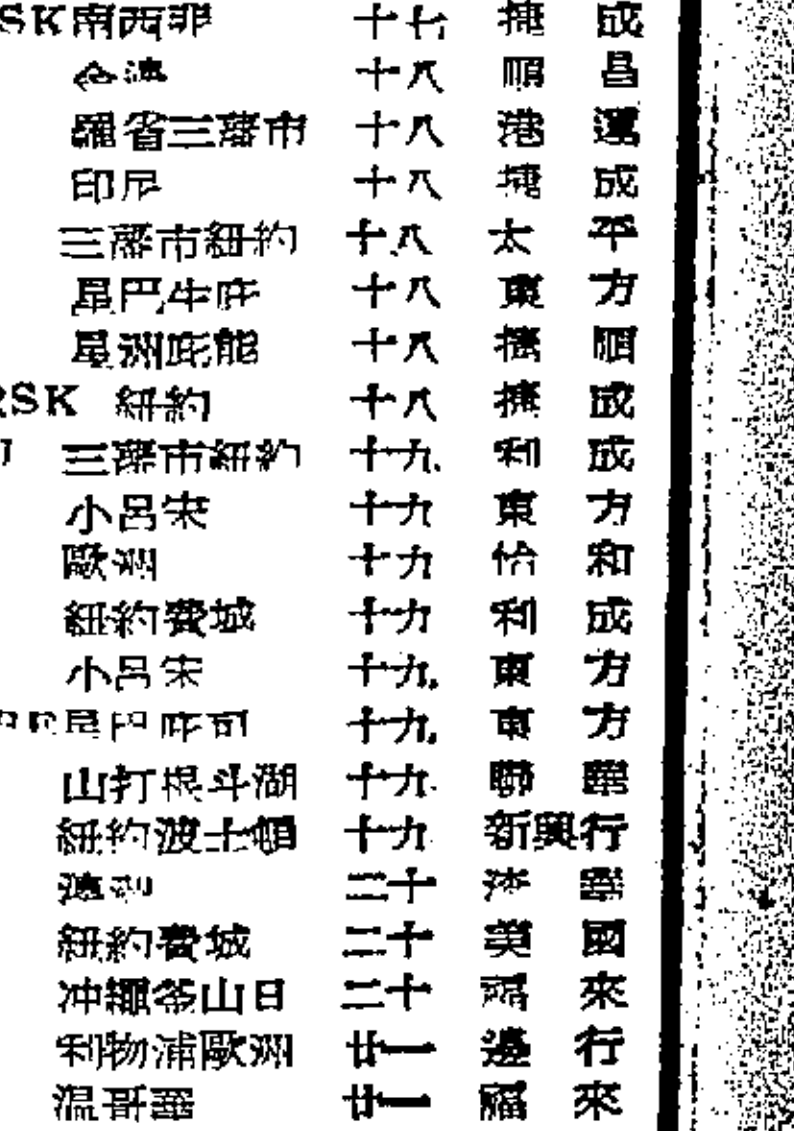 SK南西非 十七 捷成
台灣 十八 順昌
羅省三藩市 十八 港運
印尼 十八 捷成
三藩市紐約 十八 太平
星巴生庇 十八 東方
星洲庇能 十八 捷順
RSK 紐約 十八 捷成
三藩市紐約 十九 利成
小呂宋 十九 東方
歐洲 十九 怡和
紐約費城 十九 利成
小呂宋 十九 東方
星巴庇 十九 東方
山打根斗湖 十九 聯華
紐約波士頓 十九 新興行
二十
紐約費城 二十 美國
冲繩釜山日 二十 福來
利物浦歐洲 廿一 邊行
温哥華 廿一 福來